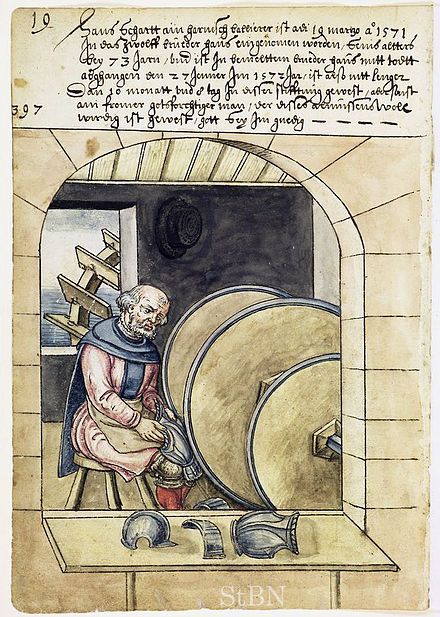 19
Hans Schartt ain harnisch ballierer ist adi 19 martzo a° 1571
In das zwolff brueder haus eingenomen worden, seins alters
bey 73 Jarn, vnd ist In bemelten brueder haus mitt todtt
abgangen den 27 Jenner Im 1572 Jar, ist also nitt lenger
Dan 10 monatt vnd 8 tag In disser stifftung gewest, aber sunst
397
ain fromer gotsforchtiger man, der disses allmussens woll
wirdig ist gewest, gott sey Im guedig
StBN